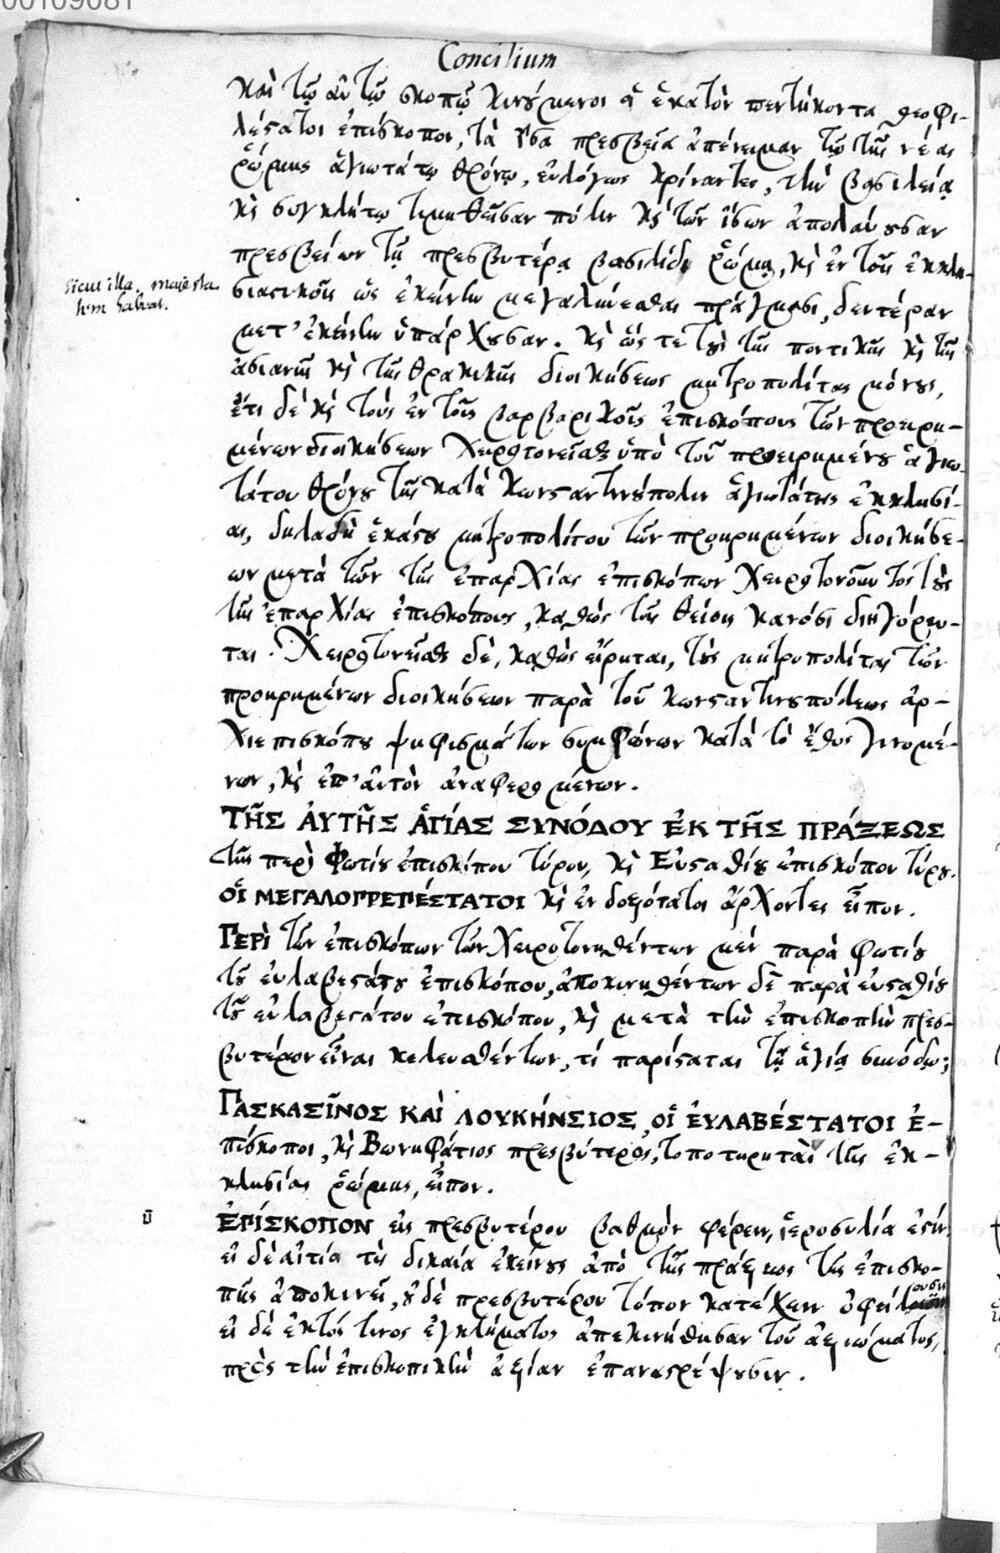 00109081
Concilium
καὶ τῷ αὐτῷ σκοπῷ κινούμενοι οἱ ἑκατὸν πεντήκοντα θεοφι-
λέστατοι ἐπίσκοποι, τὰ ἴσα πρεσβεῖα ἀπένειμαν τῷ τῆς νέας
ῥώμης ἁγιωτάτῳ θρόνῳ, εὐλόγως κρίναντες, τὴν βασιλείᾳ
καὶ συγκλήτῳ τιμηθεῖσαν πόλιν καὶ τῶν ἴσων ἀπολαύουσαν
πρεσβείων τῇ πρεσβυτέρᾳ βασιλίδι ῥώμῃ, καὶ ἐν τοῖς ἐκκλη-
σιαστικοῖς ὡς ἐκείνην μεγαλύνεσθαι πράγμασι, δευτέραν
sicut illa, maiesta
tem habeat.
μετ' ἐκείνην ὑπάρχουσαν. καὶ ὥστε τοὺς τῆς ποντικῆς καὶ τῆς
ἀσιανῆς καὶ τῆς θρακικῆς διοικήσεως μητροπολίτας μόνους,
ἔτι δὲ καὶ τοὺς ἐν τοῖς βαρβαρικοῖς ἐπισκόπους τῶν προειρη-
μένων διοικήσεων χειροτονεῖσθαι ὑπὸ τοῦ προειρημένου ἁγιω-
τάτου θρόνου τῆς κατὰ κωνσταντινούπολιν ἁγιωτάτης ἐκκλησί-
ας, δηλαδὴ ἑκάστου μητροπολίτου τῶν προειρημένων διοικήσε-
ων μετὰ τῶν τῆς ἐπαρχίας ἐπισκόπων χειροτονοῦντος τοὺς
τῆς ἐπαρχίας ἐπισκόπους, καθὼς τοῖς θείοις κανόσι διηγόρευ-
ται. Χειροτονεῖσθαι δὲ, καθὼς εἴρηται, τοὺς μητροπολίτας τῶν
προειρημένων διοικήσεων παρὰ τοῦ κωνσταντινουπόλεως ἀρ-
χιεπισκόπου ψηφισμάτων συμφώνων κατὰ τὸ ἔθος γινομέ-
νων, καὶ ἐπ' αὐτὸν ἀναφερομένων.
ΤΗ͂Σ ἈΥΤΗ͂Σ ἉΓΊΑΣ ΣΥΝΌΔΟΥ ἘΚ ΤΗ͂Σ ΠΡΆΞΕΩΣ
τῆς περὶ Φωτίου ἐπισκόπου τύρου, καὶ Εὐσταθίου ἐπισκόπου τύρου.
ΟἹ ΜΕΓΑΛΟΠΡΕΠΈΣΤΑΤΟΙ καὶ ἐνδοξότατοι ἄρχοντες εἶπον.
ΠΕΡῚ τῶν ἐπισκόπων τῶν χειροτονηθέντων μὲν παρὰ φωτίου
τοῦ εὐλαβεστάτου ἐπισκόπου, ἀποκινηθέντων δὲ παρὰ εὐσταθίου
τοῦ εὐλαβεστάτου ἐπισκόπου, καὶ μετὰ τὴν ἐπισκοπὴν πρεσ-
βυτέρων εἶναι κελευσθέντων, τί παρίσταται τῇ ἁγίᾳ συνόδῳ;
ΠΑΣΚΑΣΙ͂ΝΟΣ ΚΑῚ ΛΟΥΚΉΝΣΙΟΣ, ΟἹ ἘΥΛΑΒΈΣΤΑΤΟΙ Ἐ-
πίσκοποι, καὶ Βονηφάτιος πρεσβύτερος, τοποτηρηταὶ τῆς ἐκ-
κλησίας ῥώμης, εἶπον.
ἘΠΊΣΚΟΠΟΝ εἰς πρεσβυτέρου βαθμὸν φέρειν, ἱεροσυλία ἐστίν.
εἰ δὲ αἰτία τὶς δικαία ἐκείνους ἀπὸ τῆς πράξεως τῆς ἐπισκο-
πῆς ἀποκινεῖ, οὐδὲ πρεσβυτέρου τόπον κατέχειν ὀφείλουσιν
εἰ δὲ ἐκτός τινος ἐγκλήματος ἀπεκινήθησαν τοῦ ἀξιώματος,
πρὸς τὴν ἐπισκοπικὴν ἀξίαν ἐπαναστρέψουσιν.